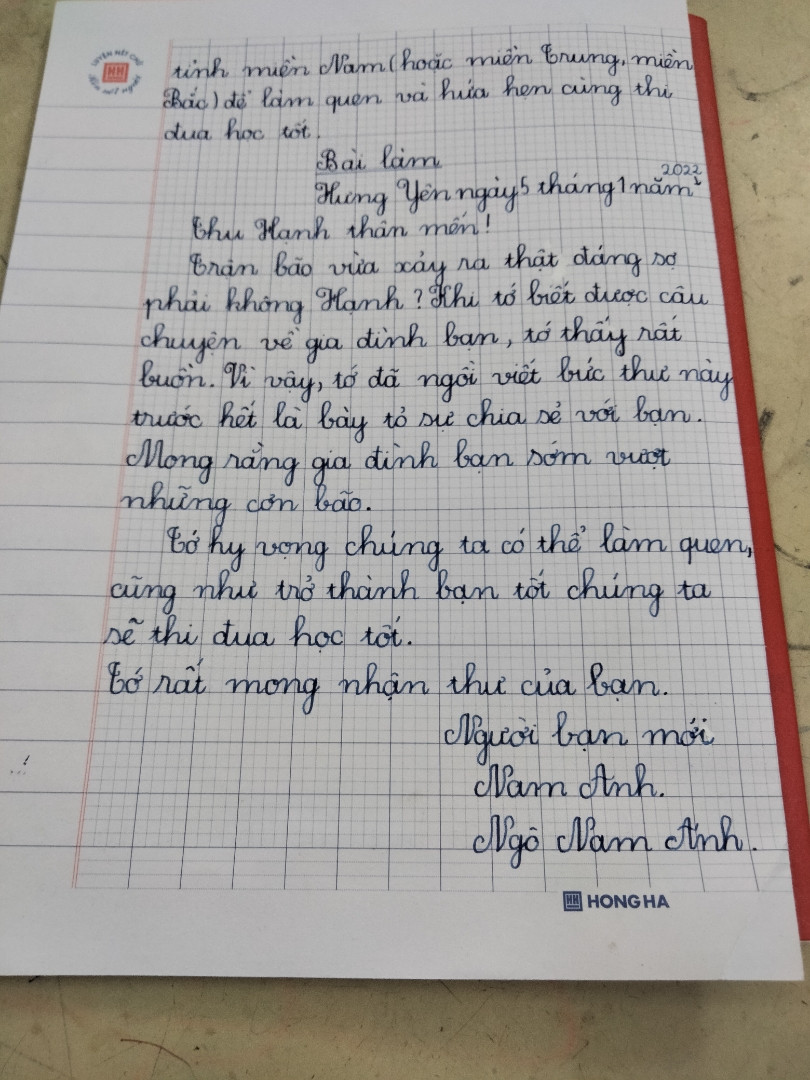 LUYỆN NÉT CHỮ
HH
RÈN NẾT NGƯỜI
tỉnh miền Nam (hoặc miền Trung, miền
Bắc) để làm quen và hứa hẹn cùng thi
đua học tốt.
Bài làm
Hưng Yên ngày 5 tháng 1 năm 2022
Thu Hạnh thân mến!
Trận bão vừa xảy ra thật đáng sợ
phải không Hạnh? Khi tớ biết được câu
chuyện về gia đình bạn, tớ thấy rất
buồn. Vì vậy, tớ đã ngồi viết bức thư này
trước hết là bày tỏ sự chia sẻ với bạn.
Mong rằng gia đình bạn sớm vượt
những cơn bão.
Tớ hy vọng chúng ta có thể làm quen,
cũng như trở thành bạn tốt chúng ta
sẽ thi đua học tốt.
Tớ rất mong nhận thư của bạn.
Người bạn mới
Nam Anh.
Ngô Nam Anh.
HH HONG HA